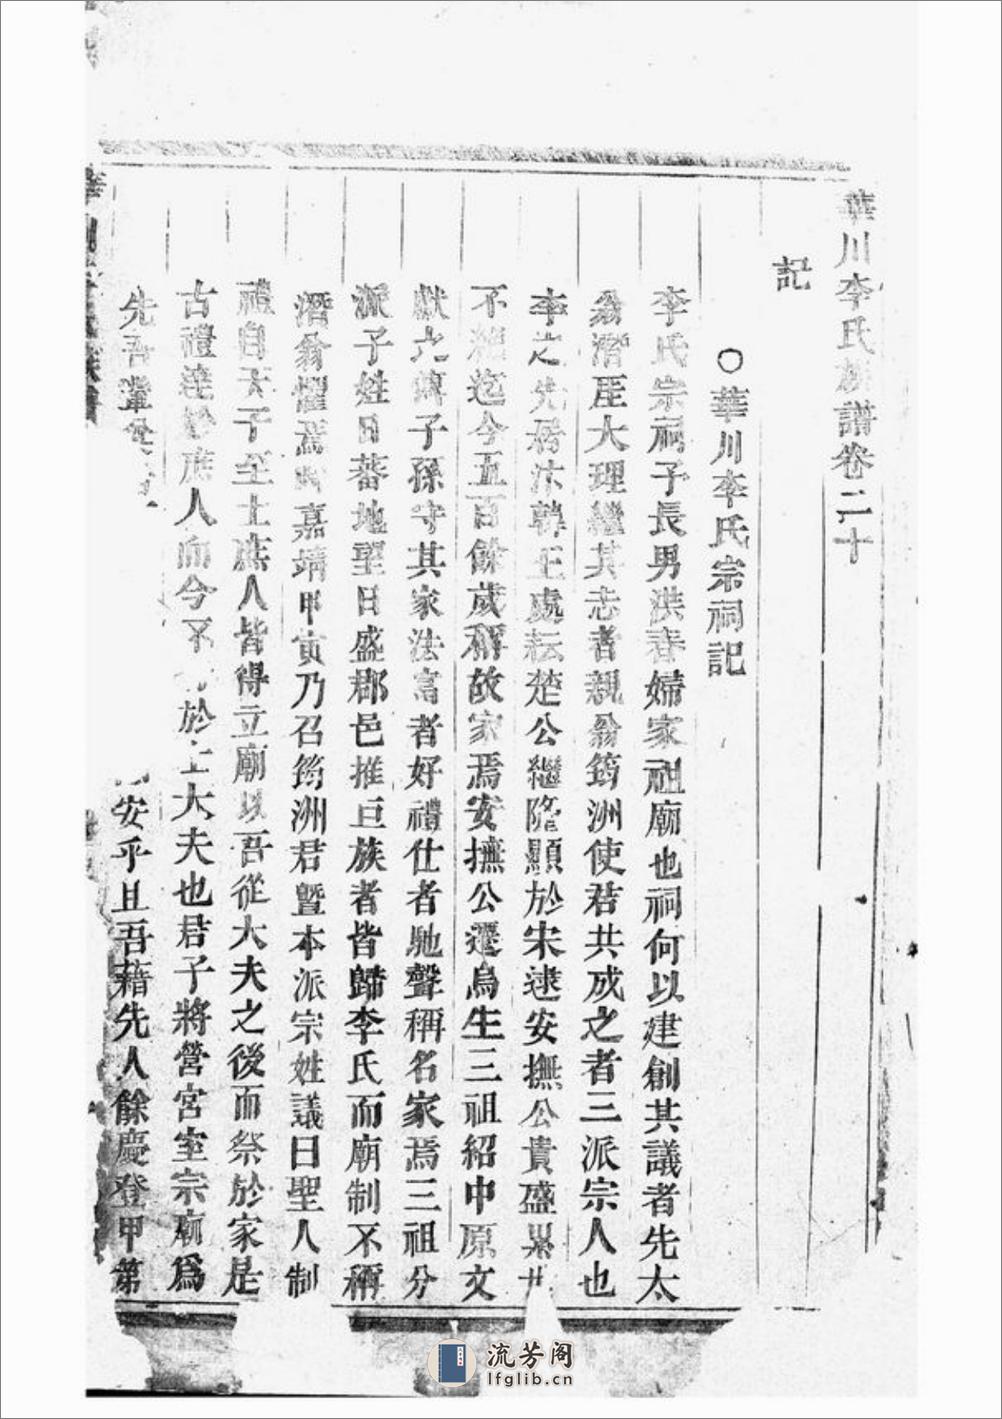 華川李氏族譜卷二十
記
○華川李氏宗祠記
李氏宗祠子長男洪春婦家祖廟也祠何以建創其議者先太
翁潛厓大理繼其志者親翁筠洲使君共成之者三派宗人也
李之先居汴韓王處耘楚公繼隆顯於宋逮安撫公貴盛累
不絕迄今五百餘歲稱故家焉安撫公遷烏生三祖紹中原文
獻之傳子孫守其家法富者好禮仕者馳聲稱名家焉三祖分
派子姓日蕃地望日盛郡邑推巨族者皆歸李氏而廟制不稱
潛翁懼焉嘉靖甲寅乃召筠洲君暨本派宗姓議曰聖人制
禮自天子至士庶人皆得立廟以吾從大夫之後而祭於家是
古禮達於庶人而今不於士大夫也君子將營宮室宗廟爲
先吾輩
安乎且吾藉先人餘慶登甲第
流芳阁
lfglib.cn